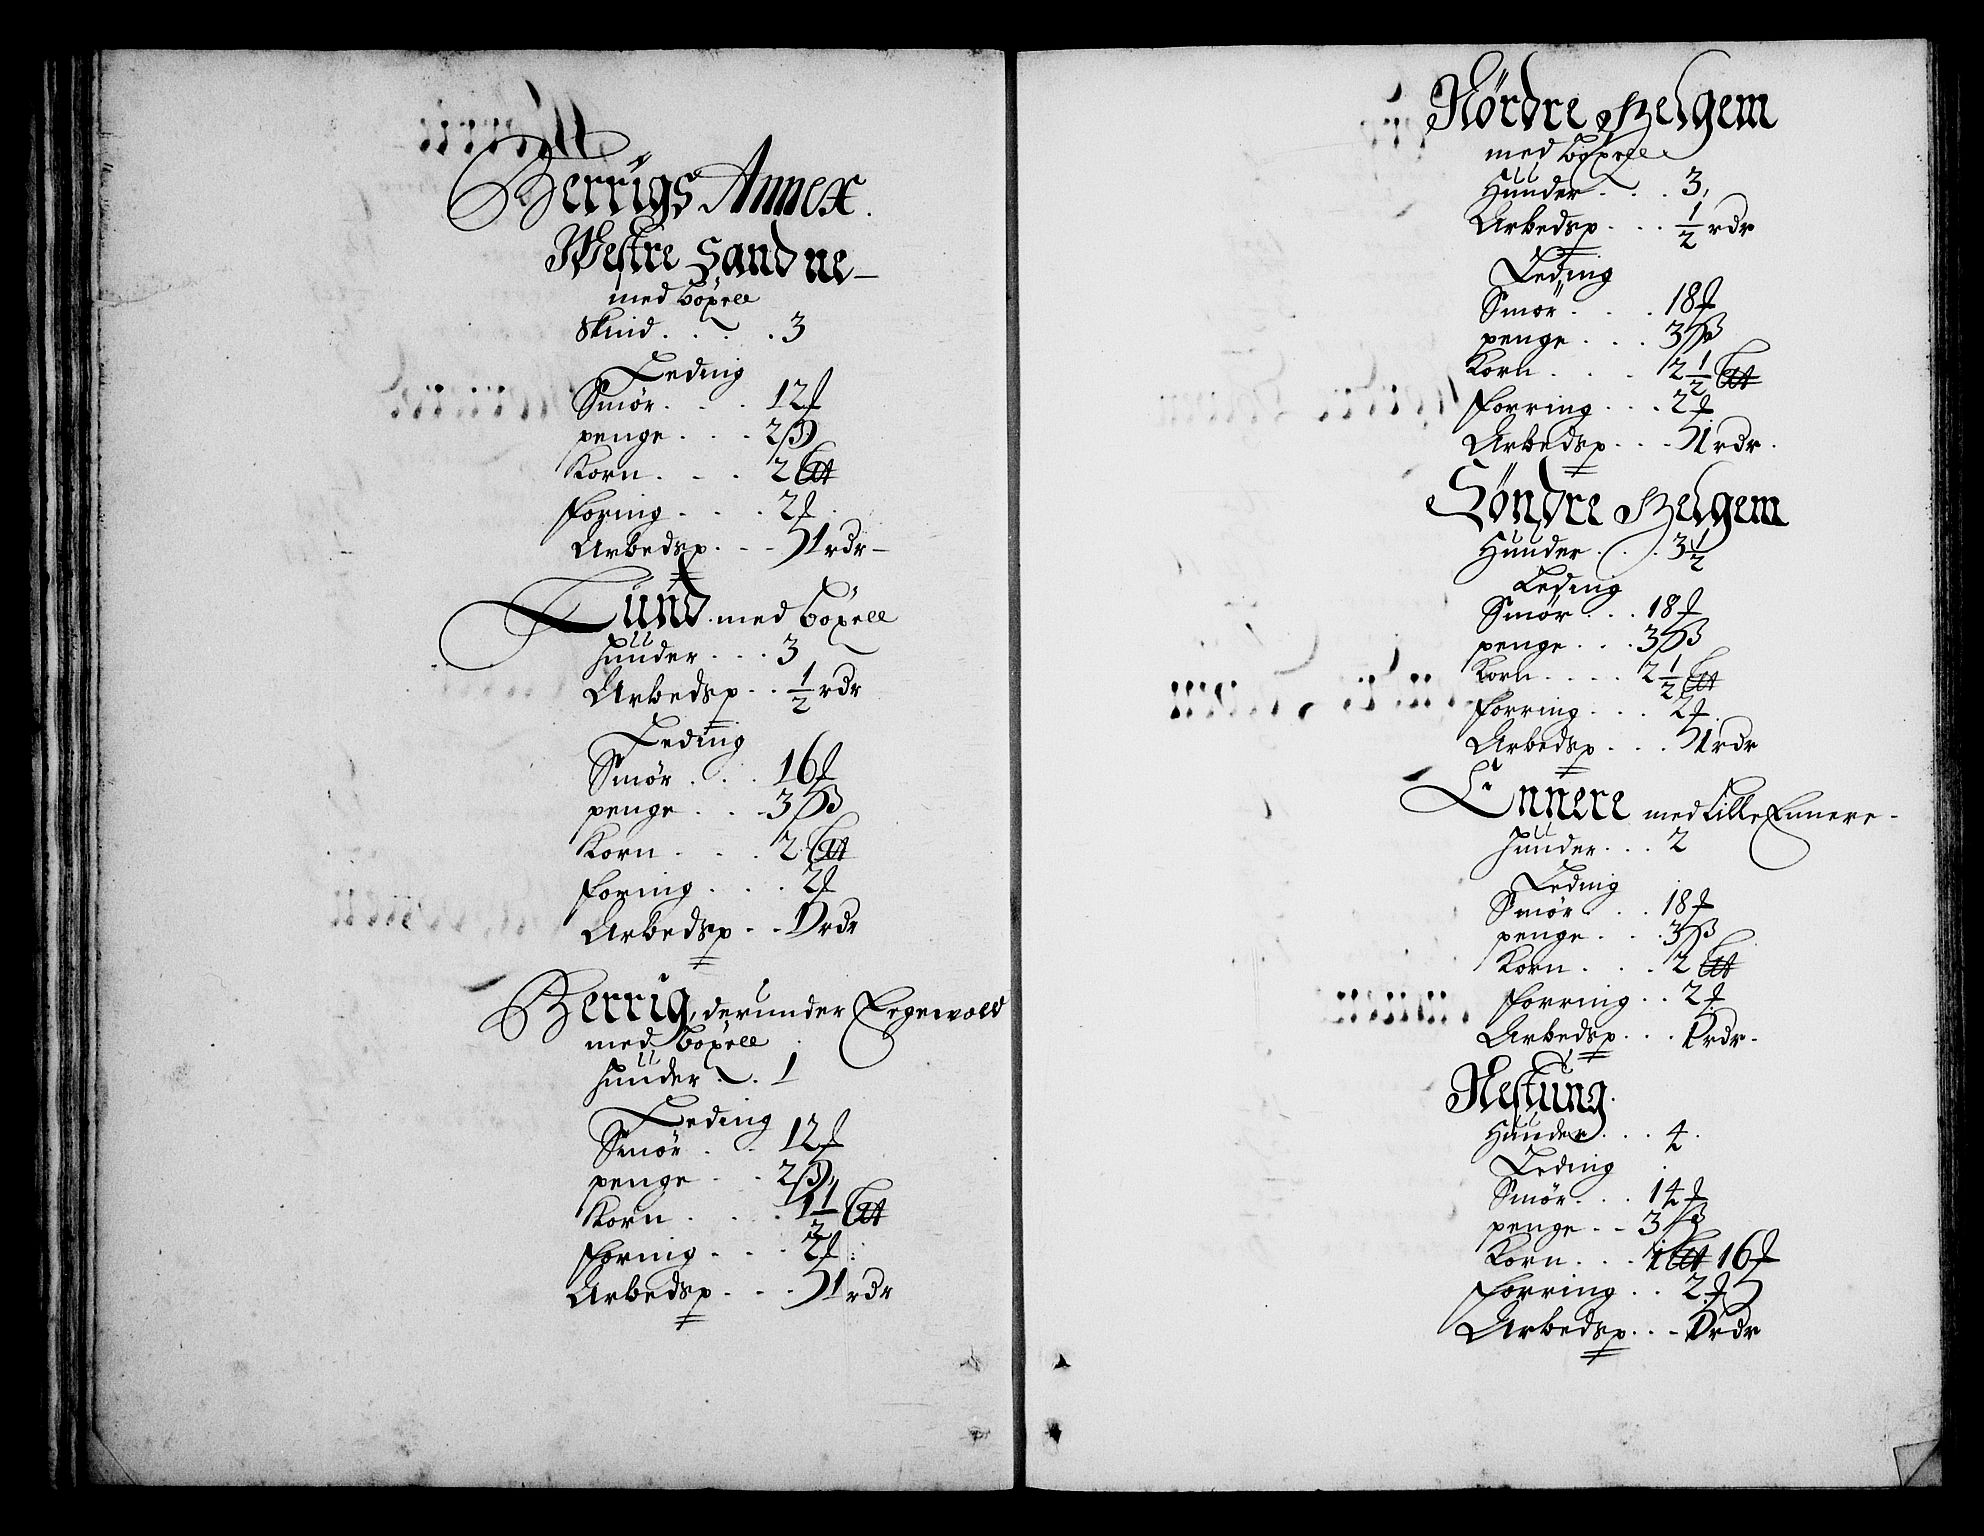 Berrigs Annex.
Westre Sandne
med böxell
Skind . . . . 3
Leding
Smør . . . 12 ℔
penge . . . 2 ß
Korn . . . 2
foring . . . 2 ℔
Arbedsp . . . 1 rdr
Lund med böxell
Huuder . . . 3
Arbedsp . . ½ rdr
Leding
Smør . . . 16 ℔
penge . . . 3 ß
Korn . . . 2
foring . . . 2 ℔
Arbedsp . . 1 rdr
Berrig, derunder Eegewold
med böxell
Huuder . . 1
Leding
Smör . . 12 ℔
penge . . 2 ß
Korn . . . 1½
foring . . . 2 ℔
Arbedsp . . . 1 rdr
Nørdre Helgem
med böxell
Huuder . . . 3
Arbedsp . . . ½ rdr
Leding
Smör . . . 18 ℔
penge . . . 3 ß
Korn . . . 2½
forring . . . 2 ℔
Arbedsp . . . 1 rdr.
Söndre Helgem
Huuder . . . 3½
Leding
Smør . . . 18 ℔
penge . . . 3 ß
Korn . . . . 2½
forring . . . 2 ℔.
Arbedsp . . . 1 rdr
Ennere med Lille Ennere
Huuder . . . 2
Leding
Smør . . . 18 ℔
penge . . . 3 ß
Korn . . . 2
forring . . 2 ℔
Arbedsp . . . 1 rdr
Nestung.
Huuder . . . 4.
Leding
Smør . . . 14 ℔
penge . . 3 ß
Korn . . . 1 16 ℔
forring . . 2 ℔
Arbedsp . . . 1 rdr